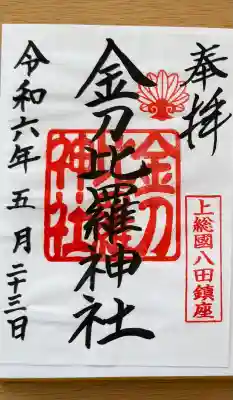 奉拝
上総國八田鎮座
金刀比羅神社
金刀比羅神社
令和六年五月二十三日